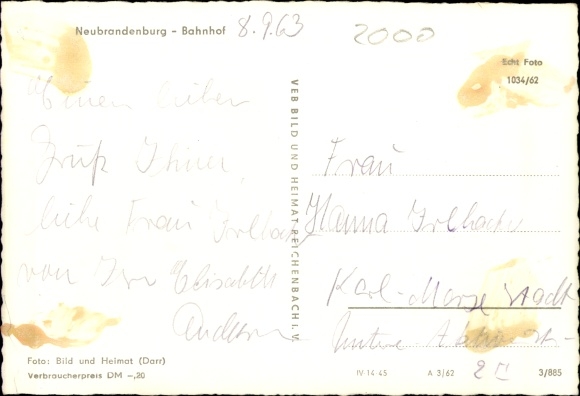 Neubrandenburg - Bahnhof 8.9.63
2000
Echt Foto
1034/62
Einen lieben
Gruß Ihnen,
liebe Frau
von Ihrer Elisabeth
VEB BILD UND HEIMAT REICHENBACH I. V.
Frau
Hanna
Karl-Marx-Stadt
Foto: Bild und Heimat (Darr)
Verbraucherpreis DM -,20
IV 14 45 A 3/62 3/885